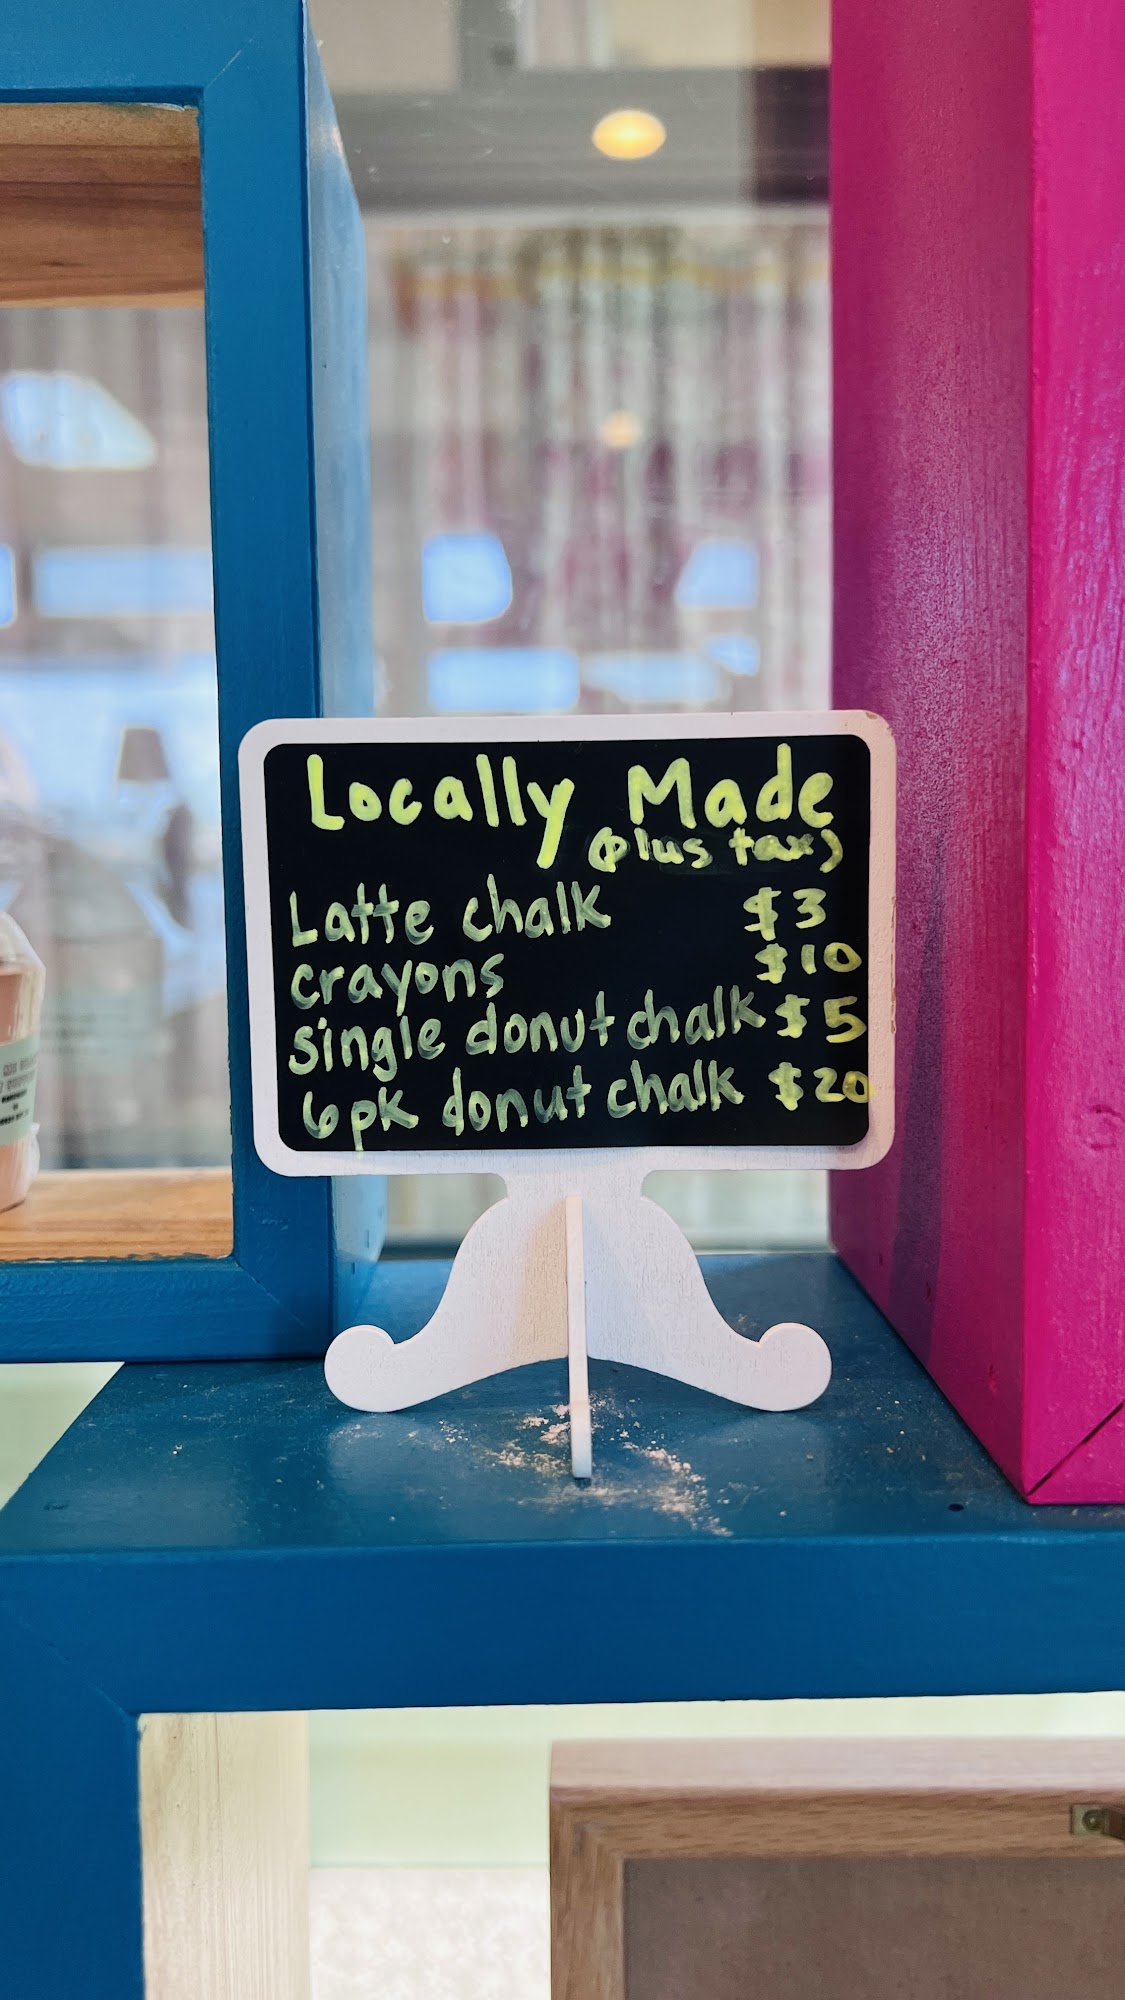 Locally Made
(plus tax)
Latte chalk $3
crayons $10
single donut chalk $5
6pk donut chalk $20